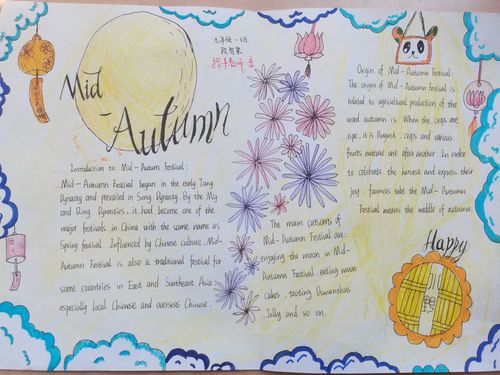 Mid
-Autumn
九年级一班
Introduction to Mid-Autumn Festival:
Mid-Autumn Festival began in the early Tang
Dynasty and prevailed in Song Dynasty. By the Ming
and Qing Dynasties, it had become one of the
major festivals in China with the same name as
Spring festival. Influenced by Chinese culture, Mid-
Autumn Festival is also a traditional festival for
some countries in East and Southeast Asia
especially local Chinese and overseas Chinese.
The main customs of
Mid-Autumn Festival are:
enjoying the moon in Mid-
Autumn Festival, eating moon
cakes, tasting Osmanthus
Jelly and so on.
Origin of Mid-Autumn Festival:
The origin of Mid-Autumn Festival is
related to agricultural production of the
word autumn is When the crops are
ripe, it is August, crops and various
fruits mature one after another. In order
to celebrate the harvest and express their
joy, farmers take the Mid-Autumn
Festival means the middle of autumn.
Happy